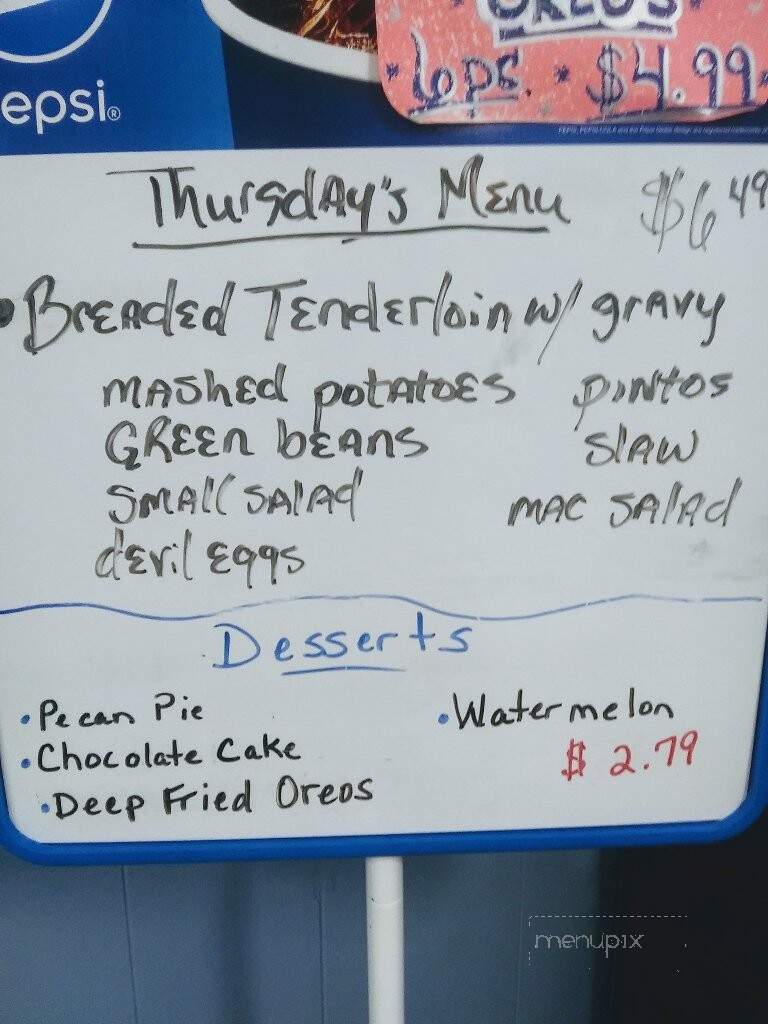 epsi®
OREO'S
6pc. * $4.99
Thursday's Menu $6 49
• Breaded Tenderloin w/ gravy
mashed potatoes pintos
Green beans slaw
small salad mac salad
devil eggs
Desserts
• Pecan Pie • Watermelon
• Chocolate Cake $2.79
• Deep Fried Oreos
menupix